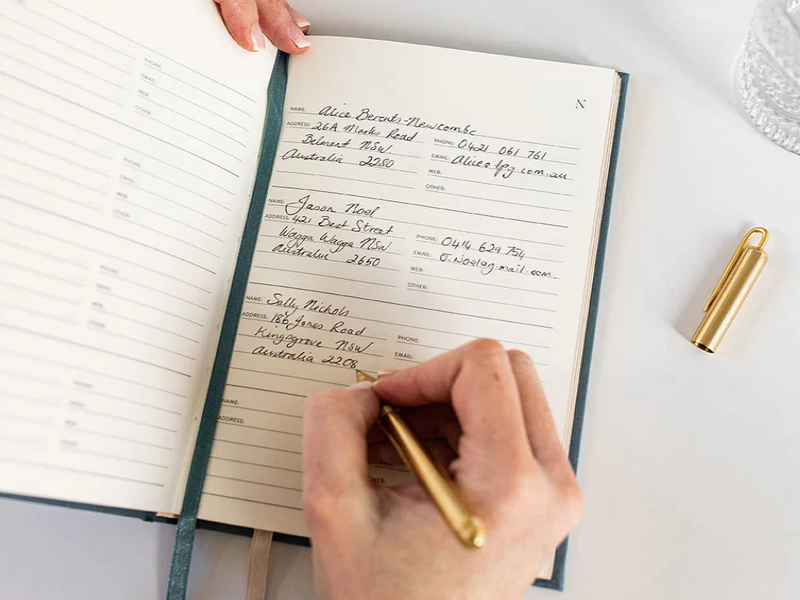 N
NAME: Alice Berents-Newcombe
ADDRESS: 26A Marks Road
PHONE: 0421 061 761
Belmont NSW
EMAIL: Alice@tpg.com.au
Australia 2280
WEB:
OTHER:
NAME: Jason Noel
ADDRESS: 421 Best Street
PHONE: 0414 629 754
Wagga Wagga NSW
EMAIL: J.Noel@gmail.com
Australia 2650
WEB:
OTHER:
NAME: Sally Nichols
ADDRESS: 186 Jones Road
PHONE:
Kingsgrove NSW
EMAIL:
Australia 2208
NAME:
ADDRESS:
PHONE:
EMAIL:
WEB:
OTHER:
PHONE:
EMAIL:
WEB:
OTHER: